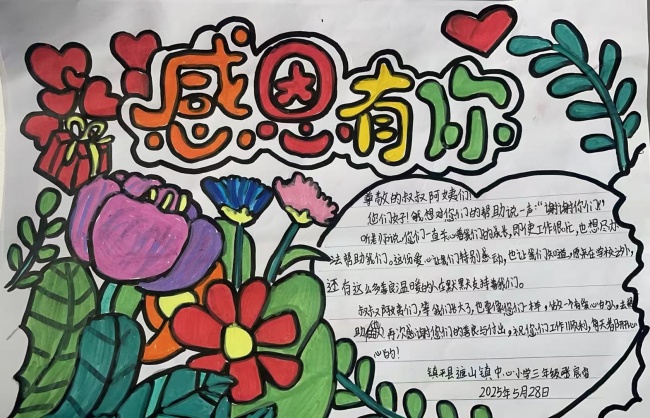 感恩有你
尊敬的叔叔阿姨们:
你们好!我想对你们的帮助说一声:“谢谢你们”
听老师说,你们一直关心着我们的成长,即使工作很忙,也想尽办
法帮助我们。这份爱心让我们特别感动,也让我们知道,原来在学校之外,
还有这么多善良温暖的人在默默支持着我们。
叔叔阿姨们,等我们长大了,也要像你们一样,做一个有爱心的人,去帮
助 再次感谢你们的善良与付出,祝你们工作顺利,每天都开开心
心的!
镇平县遮山镇中心小学三年级
2025年5月28日